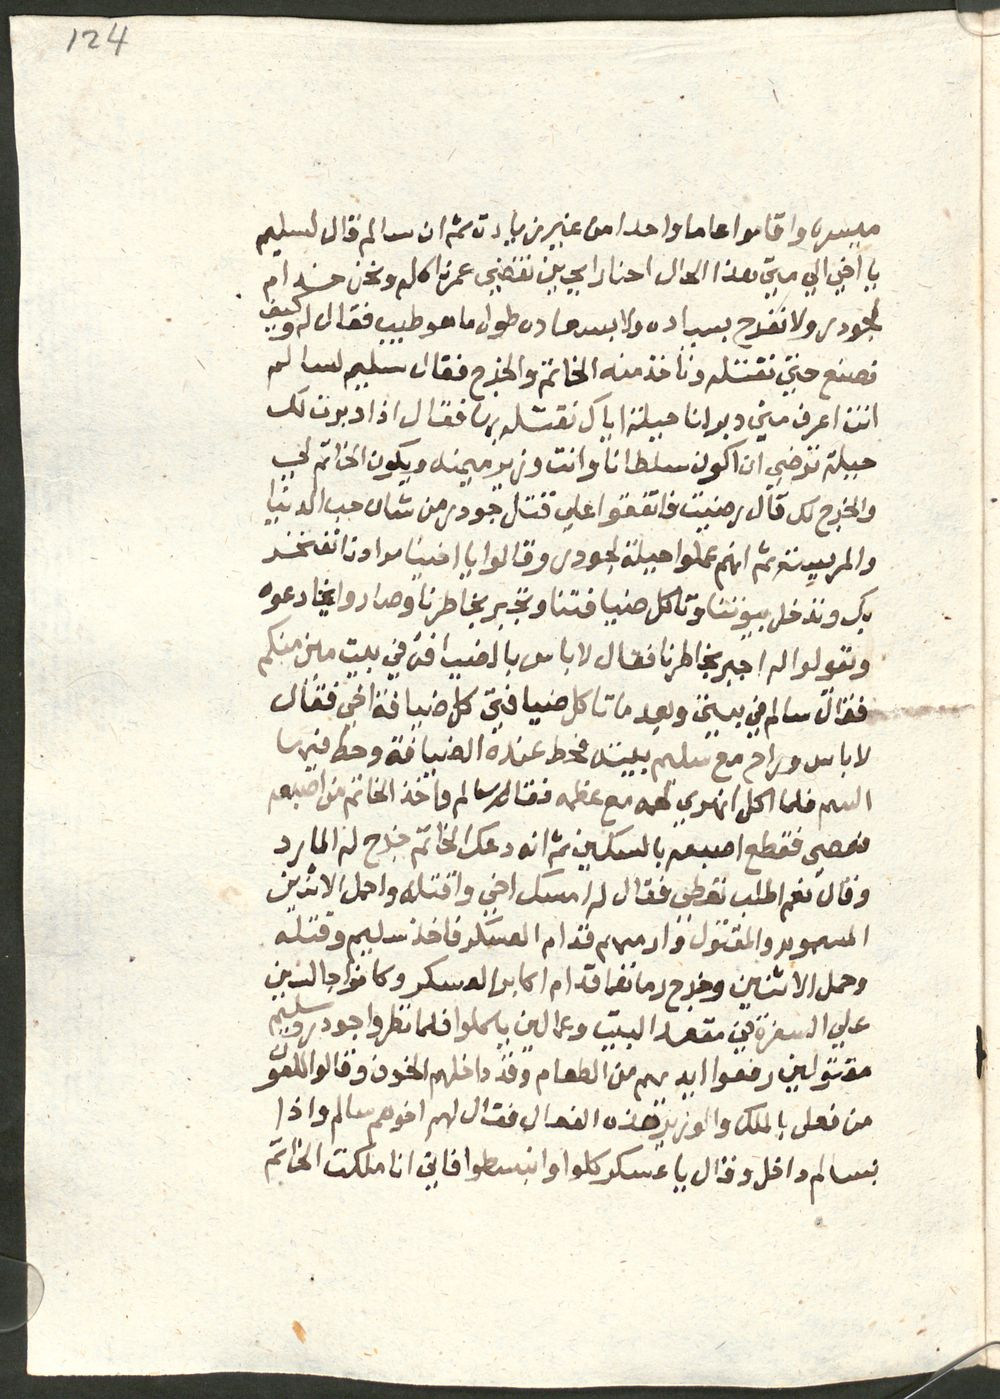 124
ميسره واقاموا عاما واحدا من غير زيادت ثم ان سالم قال لسليم
يا اخي الي ميتي هذا الحال احنا رايحين نقضي عمرنا كله ونحن خدام
لجودر ولا نفرح بسياده ولا بسعاده طول ما هو طيب فقال له وكيف
نصنع حتي نقتله وناخذ منه الخاتم والخرج فقال سليم لسالم
انت اعرف مني دبر لنا حيلة اياك نقتله بها فقال اذا دبرت لك
حيلة ترضي ان اكون سلطانا وانت وزير ميمنه ويكون الخاتم لي
والخرج لك قال رضيت فاتفقوا علي قتل جودر من شان حب الدنيا
والمريسة ثم انهم عملوا حيلة لجودر وقالوا يا اخينا مرادنا نفتخر
بك وندخل بيوتنا وتاكل ضيافتنا وتجبر بخاطرنا وصاروا يخادعوه
وتقولوا له اجبر بخاطرنا فقال لا باس بالضيافه في بيت مين منكم
فقال سالم في بيتي وبعد ما تاكل ضيافتي كل ضيافة اخي فقال
لا باس وراح مع سليم بيته فحط عنده الضيافة وحط فيها
السم فلما اكل انهري لحمه مع عظمه فقام سالم واخذ الخاتم من اصبعه
فعصي فقطع اصبعه بالسكين ثم انه دعك الخاتم خرج له المارد
وقال نعم اطلب تعطي فقال له امسك اخي واقتله واحمل الاثنين
المسموم والمقتول وارميهم قدام العسكر فاخذ سليم وقتله
وحمل الاثنين وخرج رماهما قدام اكابر العسكر وكانوا جالسين
علي السفرة في مقعد البيت وعمالين ياكلوا فلما نظروا جودر وسليم
مقتولين رفعوا ايديهم من الطعام وقد داخلهم الخوف وقالوا للعون
من فعل بالملك والوزير هذه الفعال فقال لهم اخوهم سالم واذا
بسالم داخل وقال يا عسكر كلوا وانبسطوا فاني انا ملكت الخاتم